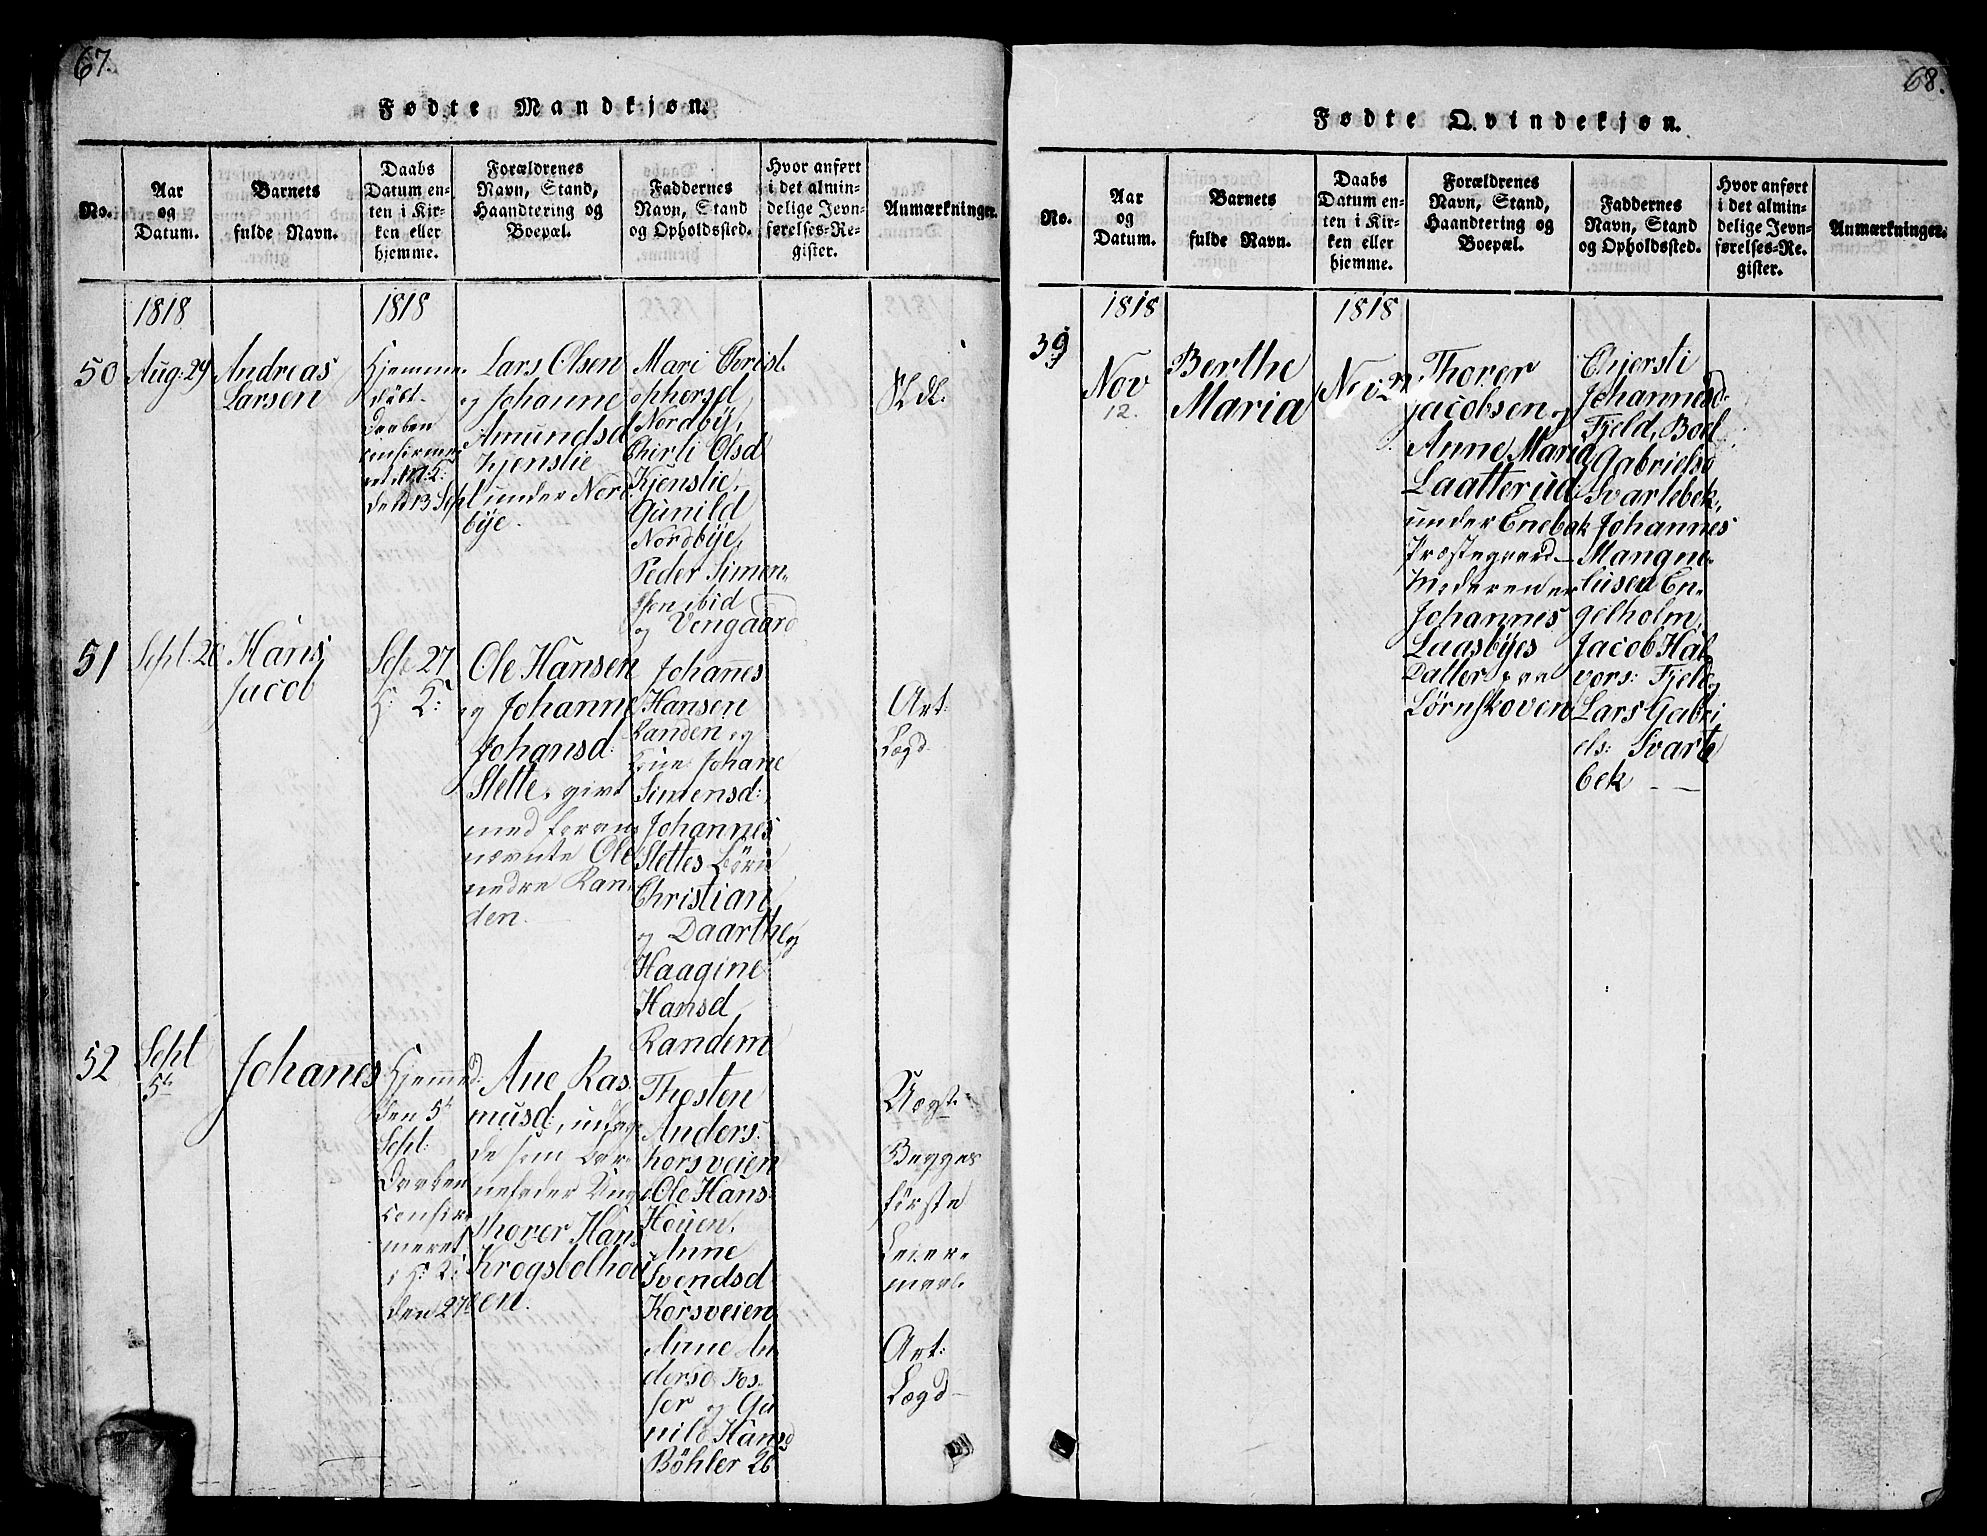 67.
Fødte Mandkjøn.
No.
Aar
og
Datum.
Barnets
fulde Navn.
Daabs
Datum en-
ten i Kir-
ken eller
hjemme.
Forældrenes
Navn, Stand,
Haandtering og
Boepæl.
Faddernes
Navn, Stand
og Opholdssted.
Hvor anført
i det almin-
delige Jevn-
førelses-Re-
gister.
Anmærkninger.
1818
1818
50
Aug. 29
Andreas
Larsen
Hjemme
døbt.
Daaben
confirme
ret
den 13 Sept
Lars Olsen
og Johanne
Amundsd
Kjenslie
under Nord
bye.
Mari Christ.
ophersd
Nordby,
Chirli Olsd
Kjenslie,
Gunild
Nordbye,
Peder Simen-
sen ibid
og Vengaard
51
Sept. 20
Hans
Jacob
Sept 27
H: K:
Ole Hansen
og Johanne
Johansd:
Slette, givt
med foran-
nævnte Ole
nedre Ran
den.
Johannes
Hansen
Randen og
Kone Johane
Simensd:
Johannes
Slettes Börn
Christian
og Daarthe og
Haagine
Hansd
Randem
Art:
Lægd.
52
Sept
5te
Johanes
Hjemmed:
den 5te
Sept:
Daaben
confir
meret
i H: K:
den 27de
Ane Ras
musd:, udlag
de som Bar-
nefader Ung
Thorer Hans
Krogsbølhou
en.
Thosten
Anders:
horsveien
Ole Hans:
Houen,
Anne
Svendsd
Korsveien,
Anne An
dersd Fos
ser og Gu
nild Hansd
Böhler 26
Uægt.
Begges
første
Leier-
maal.
Art:
Lægd
68.
Fødte Qvindekjøn.
No.
Aar
og
Datum.
Barnets
fulde Navn.
Daabs
Datum en-
ten i Kir-
ken eller
hjemme.
Forældrenes
Navn, Stand,
Haandtering og
Boepæl.
Faddernes
Navn, Stand
og Opholdssted.
Hvor anført
i det almin-
delige Jevn-
førelses-Re-
gister.
Anmærkninger.
1818
1818
39
Nov
12.
Berthe
Maria
Nov 22
Thorer
Jacobsen og
Anne Maria
Laatterud
under Enebak
Præstegaard
Moderen er
Johannes
Luasbyes
Datter paa
Börnskoven
Chjersti
Johannesd
Fjeld, Boel
Gabrielsd
Svartebek,
Johannes
Mangne-
lusen En-
gelholm,
Jacob Hal
vors: Fjeld og
Lars Gabri
els: Svarte
bek